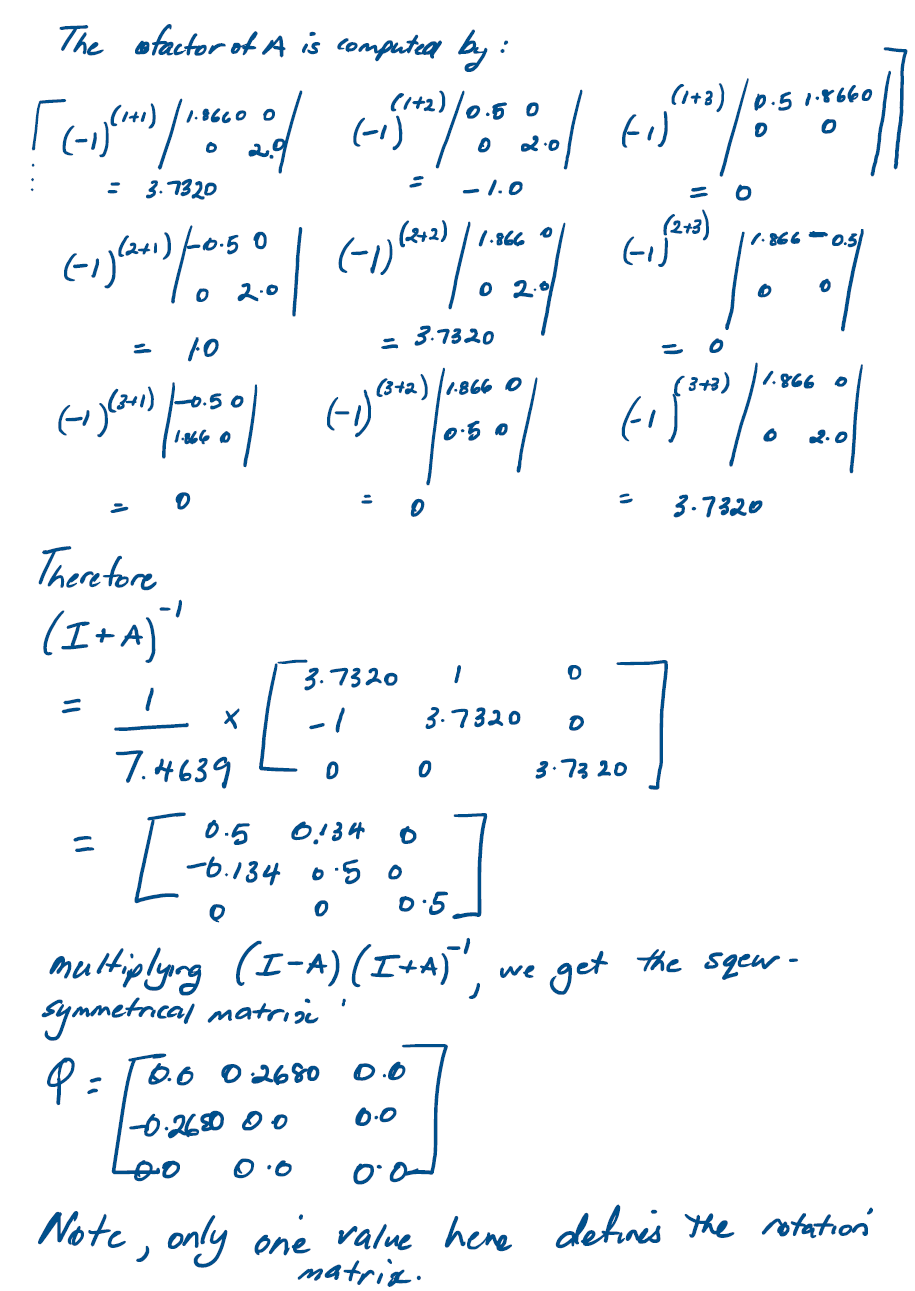 The cofactor of A is computed by:
[ (-1)^(1+1) | 1.8660 0 ; 0 2.0 | (-1)^(1+2) | 0.5 0 ; 0 2.0 | (-1)^(1+3) | 0.5 1.8660 ; 0 0 | ]
= 3.7320 = -1.0 = 0
(-1)^(2+1) | -0.5 0 ; 0 2.0 | (-1)^(2+2) | 1.866 0 ; 0 2.0 | (-1)^(2+3) | 1.866 -0.5 ; 0 0 |
= 1.0 = 3.7320 = 0
(-1)^(3+1) | -0.5 0 ; 1.866 0 | (-1)^(3+2) | 1.866 0 ; 0.5 0 | (-1)^(3+3) | 1.866 0 ; 0 2.0 |
= 0 = 0 = 3.7320
Therefore
(I+A)^-1
= 1/7.4639 × [ 3.7320 1 0 ; -1 3.7320 0 ; 0 0 3.7320 ]
= [ 0.5 0.134 0 ; -0.134 0.5 0 ; 0 0 0.5 ]
multiplying (I-A)(I+A)^-1, we get the sqew-
symmetrical matrix
φ = [ 0.0 0.2680 0.0 ; -0.2680 0.0 0.0 ; 0.0 0.0 0.0 ]
Note, only one value here defines the rotation
matrix.